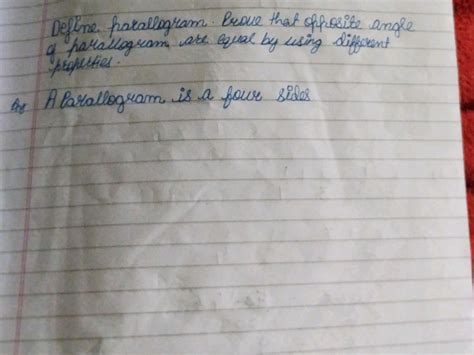 Define parallogram. Prove that opposite angle
of parallogram are equal by using different
properties.
A Parallogram is a four sides